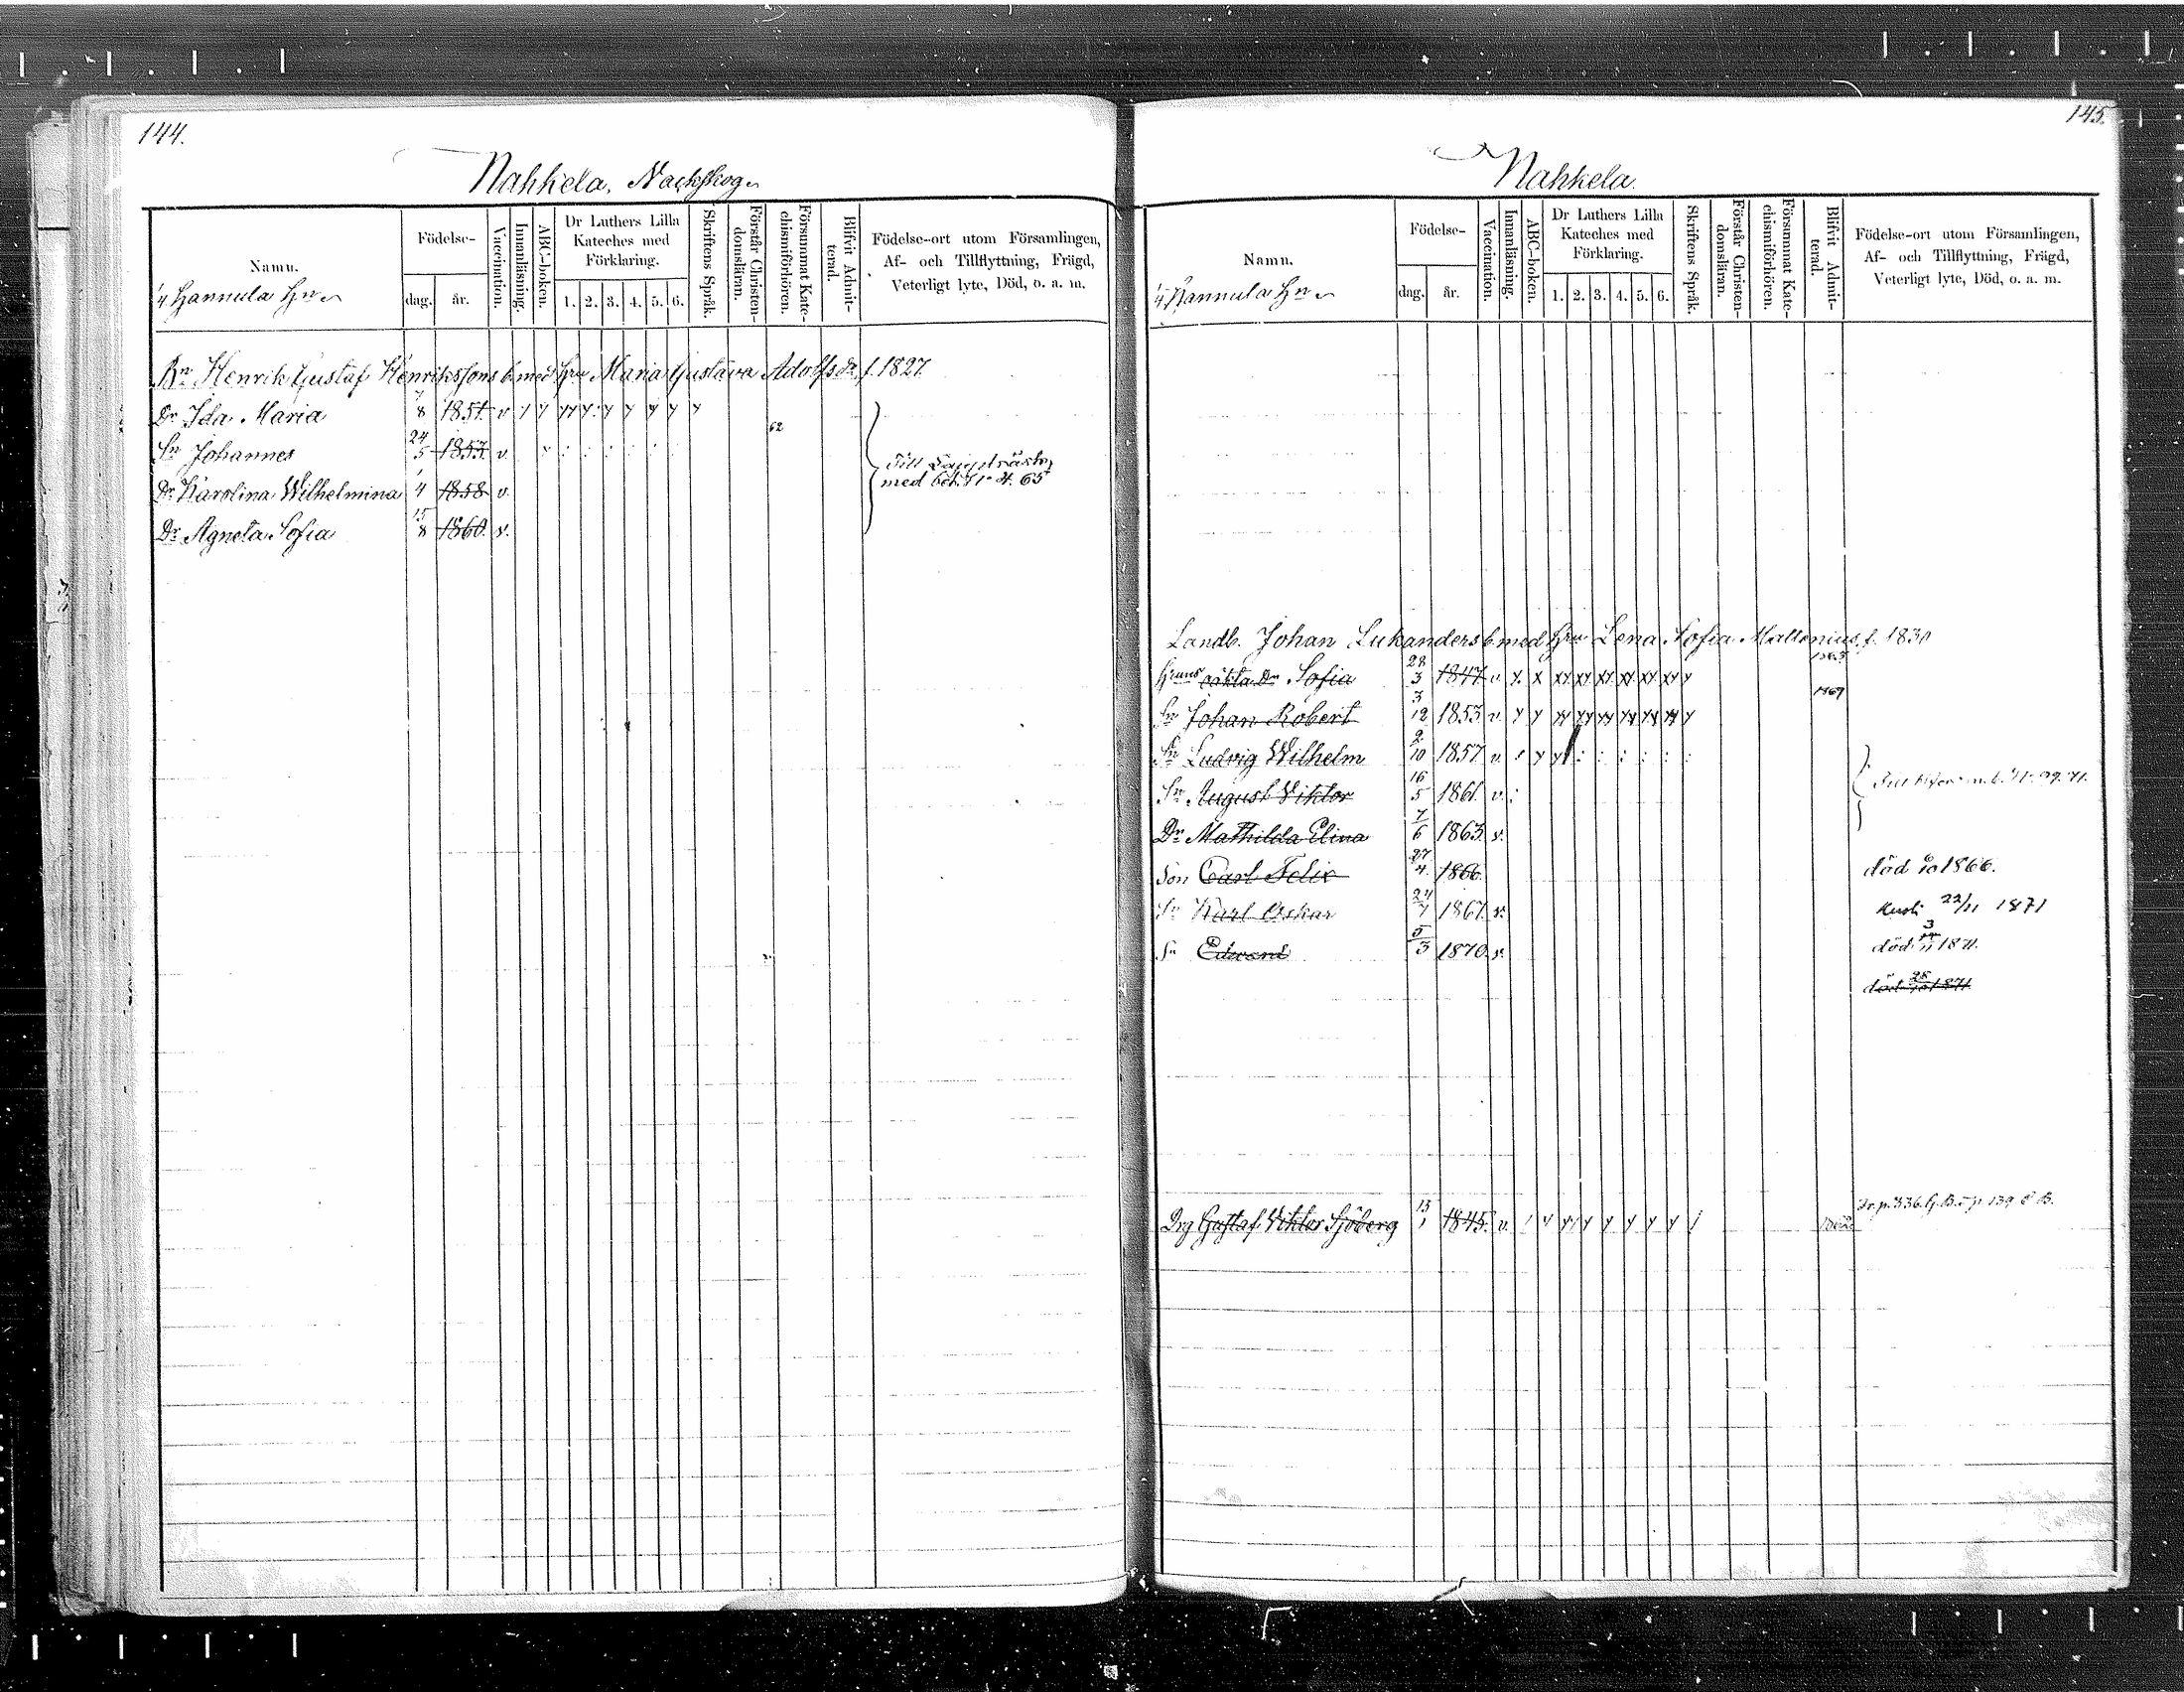 144.
Nahkela, Nackskog
Namn.
Födelse-
dag.
år.
Vaccination.
Innanläsning.
ABC-boken.
Dr Luthers Lilla
Kateches med
Förklaring.
1. 2. 3. 4. 5. 6.
Skriftens Språk.
Förstår Christen-
domsläran.
Försummat Kate-
chismiförhören.
Blifvit Admit-
terad.
Födelse-ort utom Församlingen,
Af- och Tillflyttning, Frägd,
Veterligt lyte, Död, o. a. m.
Hannula Hn
Bn Henrik Gustaf Henrikssons b. med Hru Maria Gustava Adolfsdr f. 1827.
Dr Ida Maria 7/8 1851. v
62
Sn Johannes 24/5 1853. v.
Dr Karolina Wilhelmina 1/4 1858 v.
Till
med bet. 65
Dr Agneta Sofia 15/8 1860. v.
145.
Nahkela.
Namn.
Födelse-
dag.
år.
Vaccination.
Innanläsning.
ABC-boken.
Dr Luthers Lilla
Kateches med
Förklaring.
1. 2. 3. 4. 5. 6.
Skriftens Språk.
Förstår Christen-
domsläran.
Försummat Kate-
chismiförhören.
Blifvit Admit-
terad.
Födelse-ort utom Församlingen,
Af- och Tillflyttning, Frägd,
Veterligt lyte, Död, o. a. m.
Hannula Hn
Landb. Johan Lukanders b. med Hru Lena Sofia Mattenius, f. 1830
Hruns oäkta Dr Sofia 28/3 1847 v
1869
Sn Johan Robert 3/12 1853 v.
Sn Ludvig Wilhelm 2/10 1857 v.
Sn August Viktor 16/5 1861. v.
Dr Mathilda Elina 7/6 1863. v.
Son Carl Felix 27/4 1866. död 1866.
Sn Karl Oskar 24/7 1867. v. 22/11 1871
Sn Edvard 5/3 1870. v. död 3/11 1871.
död 25/10 1871
Drg Gustaf Viktor Sjöberg 13/1 1845. v.